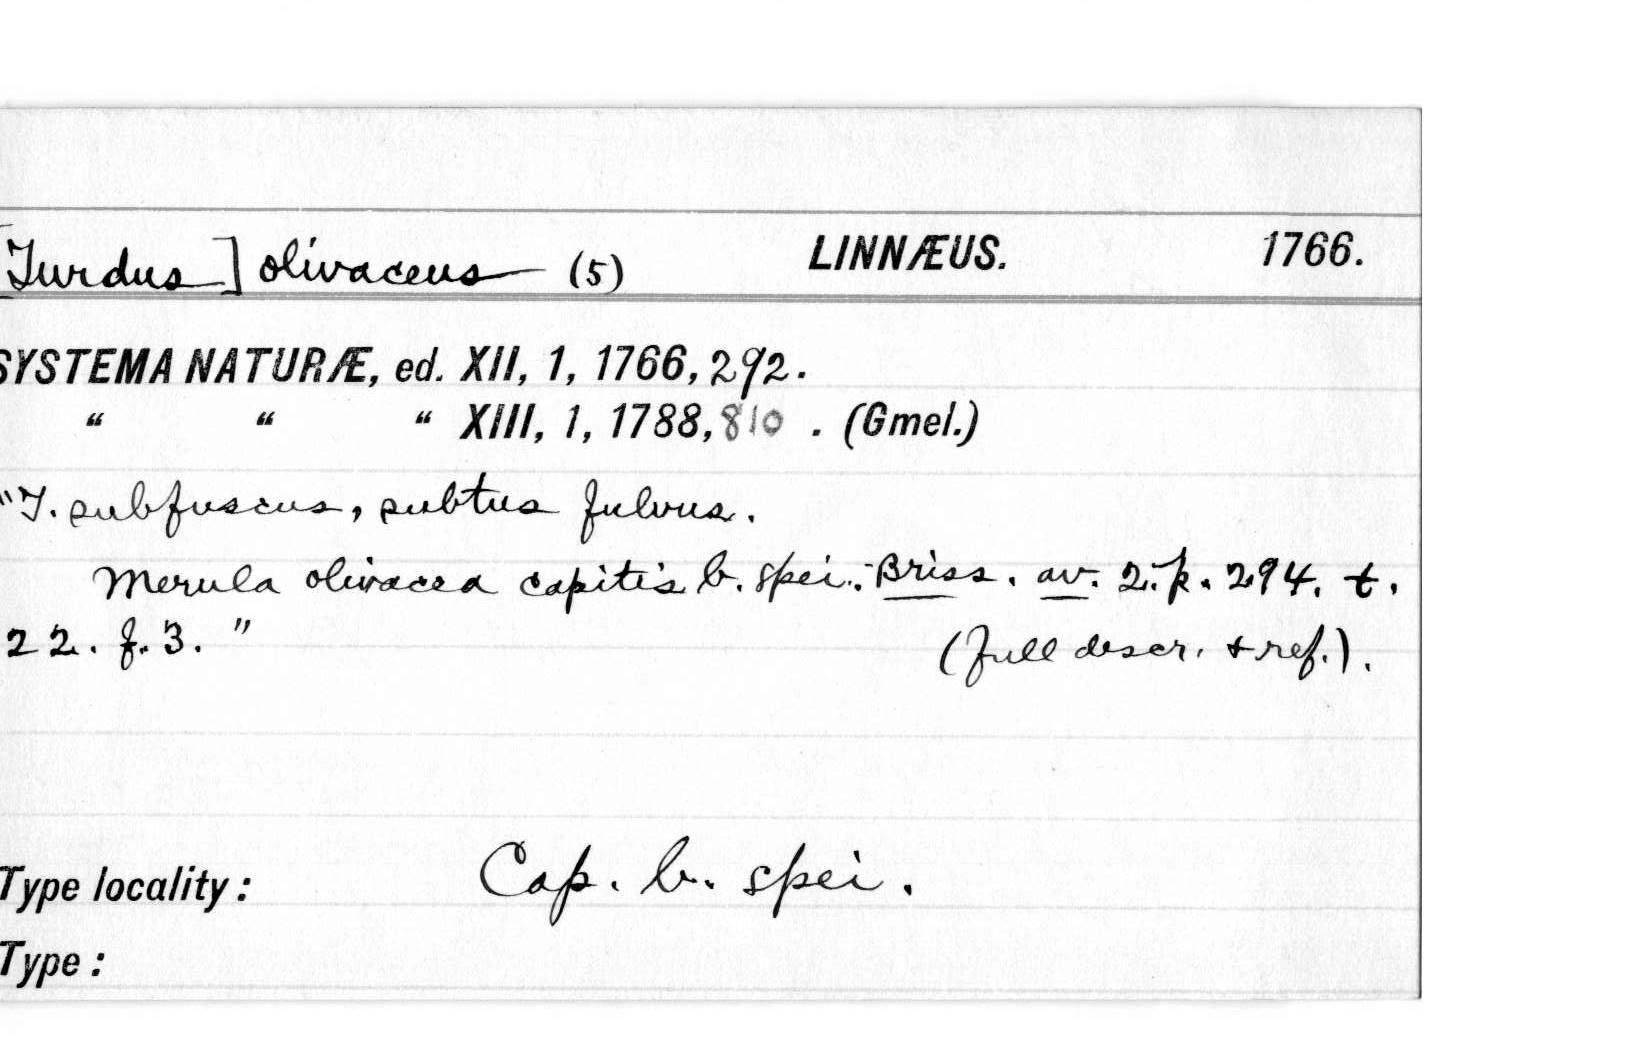 [Turdus] olivaceus (5) LINNÆUS. 1766.
SYSTEMA NATURÆ, ed. XII, 1, 1766, 292.
“ “ “ XIII, 1, 1788, 810 . (Gmel.)
"T. subfuscus, subtus fulvus.
Merula olivacea capitis b. spei. Briss. av. 2. p. 294. t.
22. f. 3. "
(full descr. + ref.).
Type locality: Cap. b. spei.
Type: